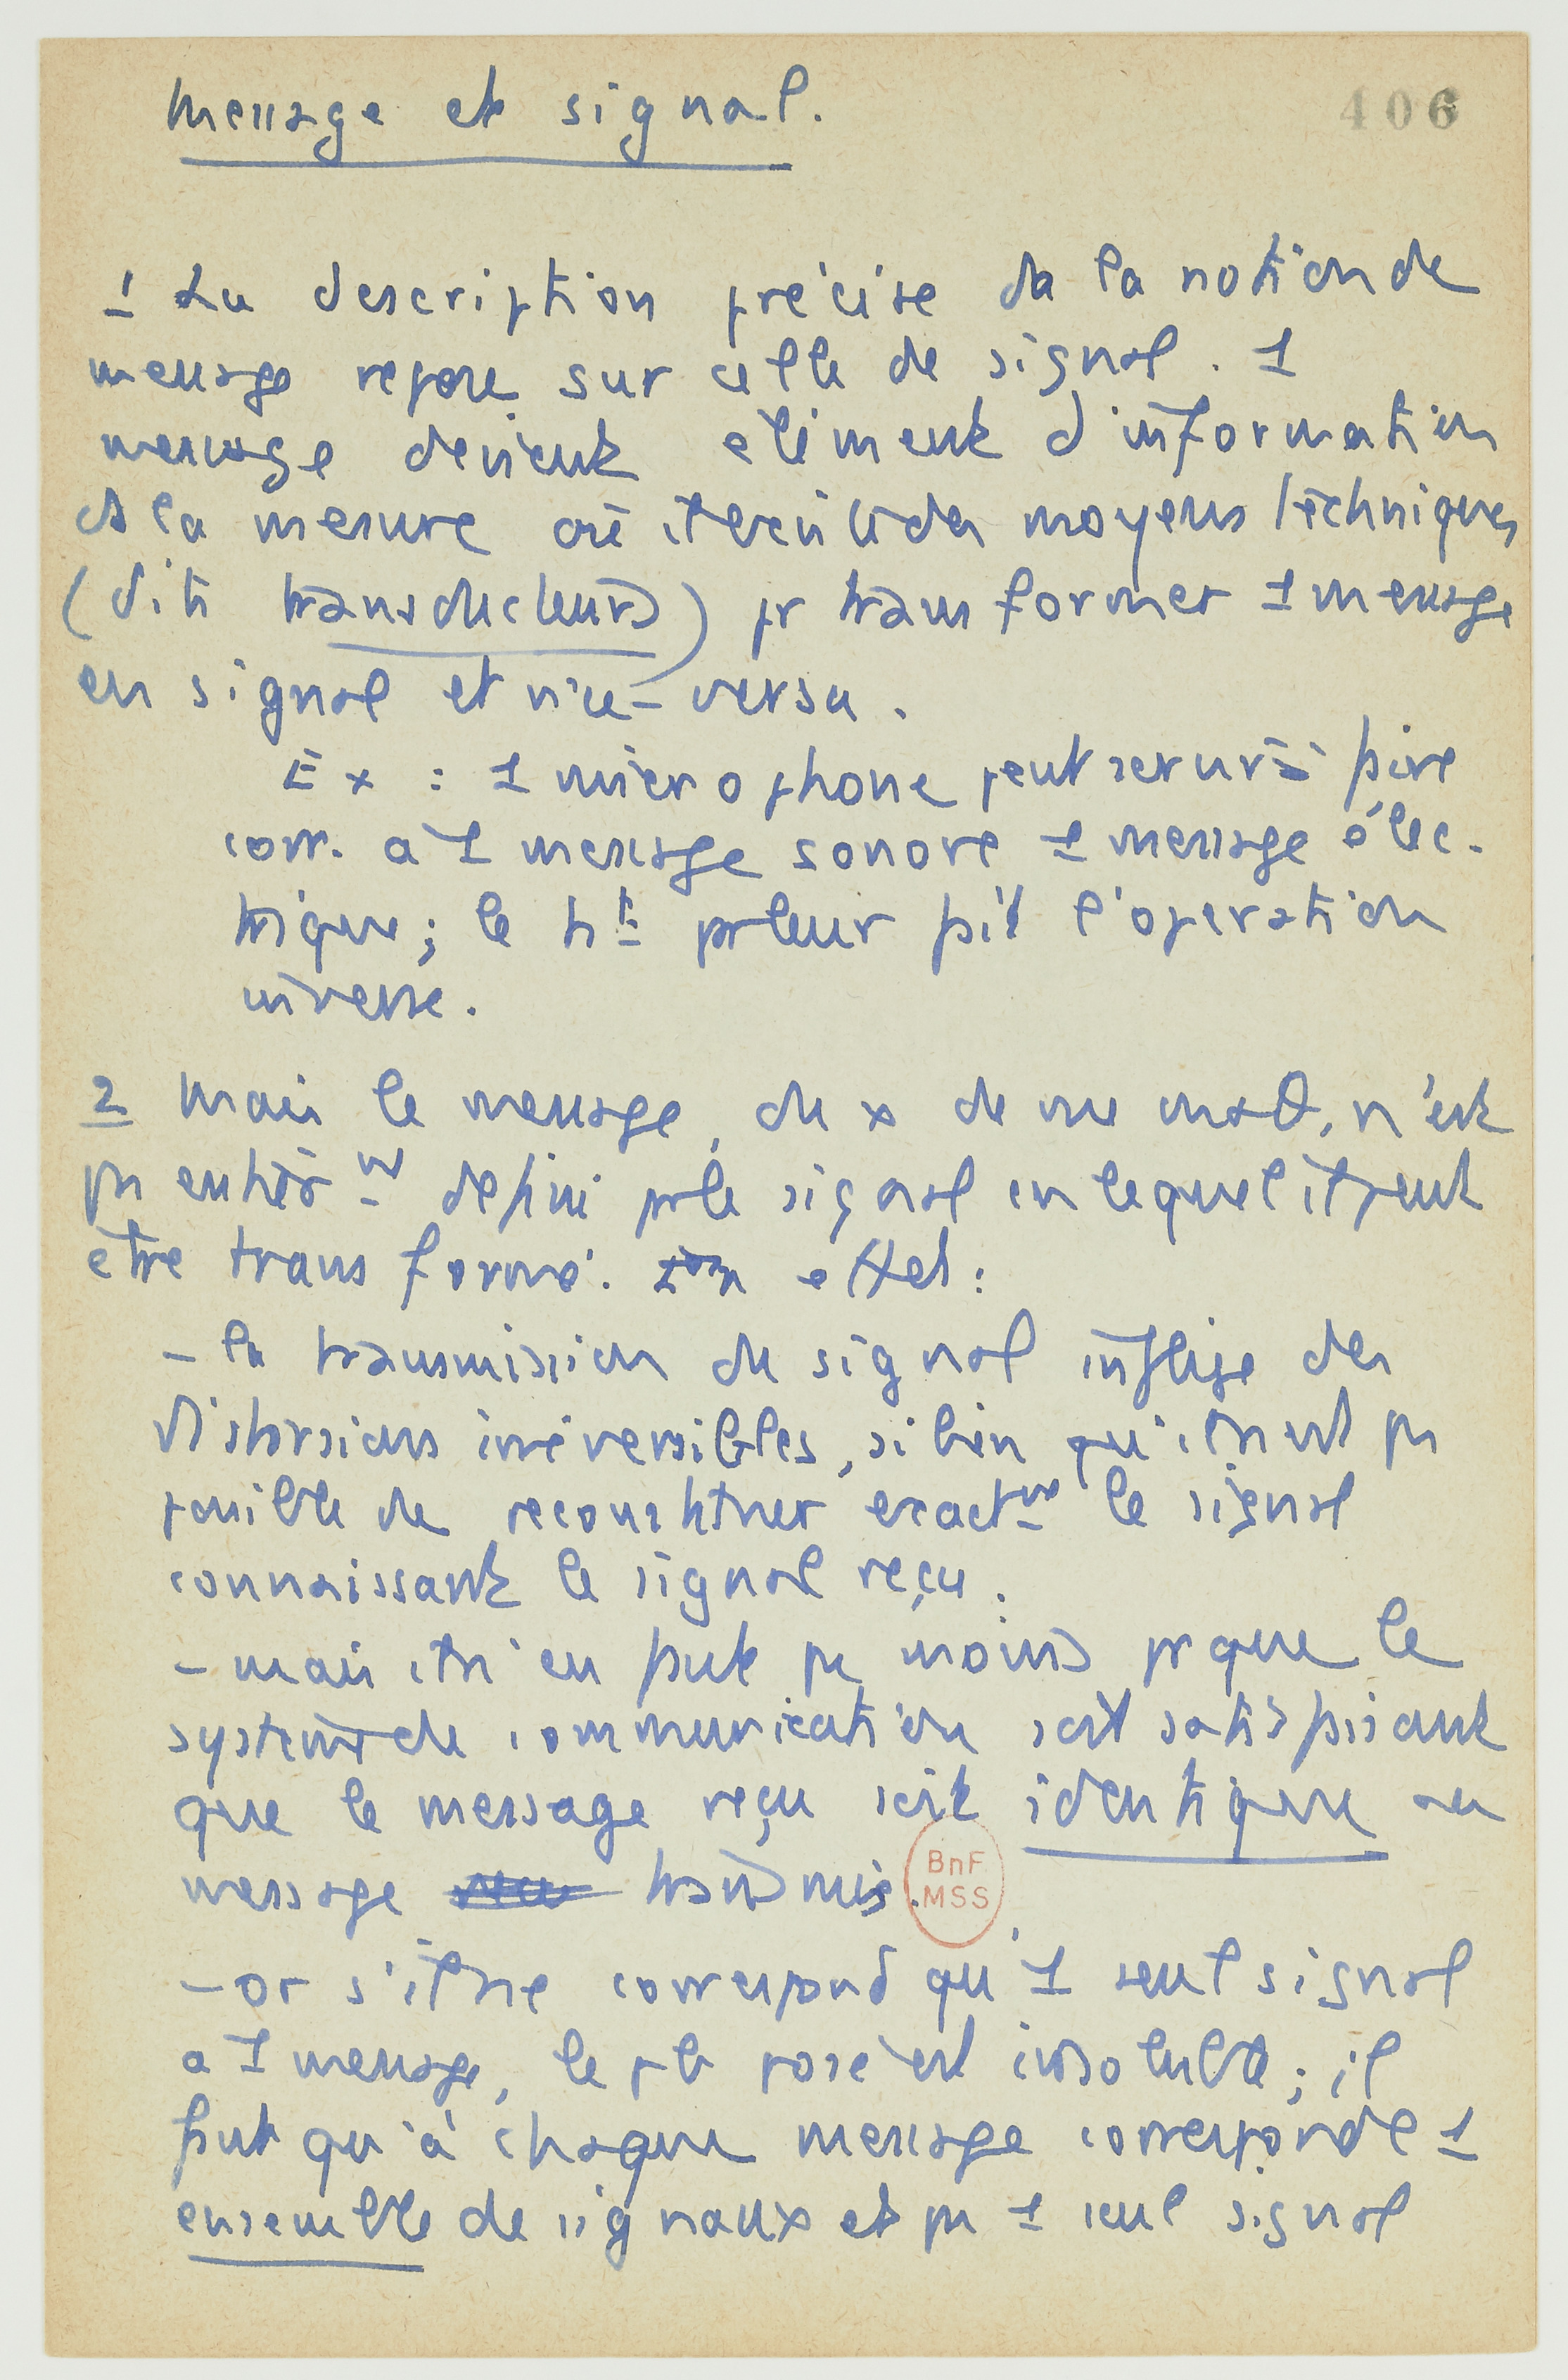 Message et signal.
406
1 La description précise de la notion de
message repose sur celle de signal. 1
message devient élément d'information
ds la mesure où il existe des moyens techniques
(dits transducteurs) pr transformer 1 message
en signal et vice-versa.
Ex : 1 microphone peut servir à faire
corr. à 1 message sonore 1 message élec-
trique ; le ht prleur fait l'opération
inverse.
2 Mais le message, du x de vue math, n'est
pas entièrmt défini par le signal en lequel il peut
être transformé. En effet :
- la transmission du signal inflige des
distorsions irréversibles, si bien qu'il n'est pas
possible de reconstituer exactmt le signal
connaissant le signal reçu.
- mais il n'en faut pas moins pr que le
système de communication soit satisfaisant
que le message reçu soit identique au
message transmis.
BnF
MSS
- or s'il ne correspond qu'1 seul signal
à 1 message, le pb posé est insoluble ; il
faut qu'à chaque message corresponde 1
ensemble de signaux et pas 1 seul signal